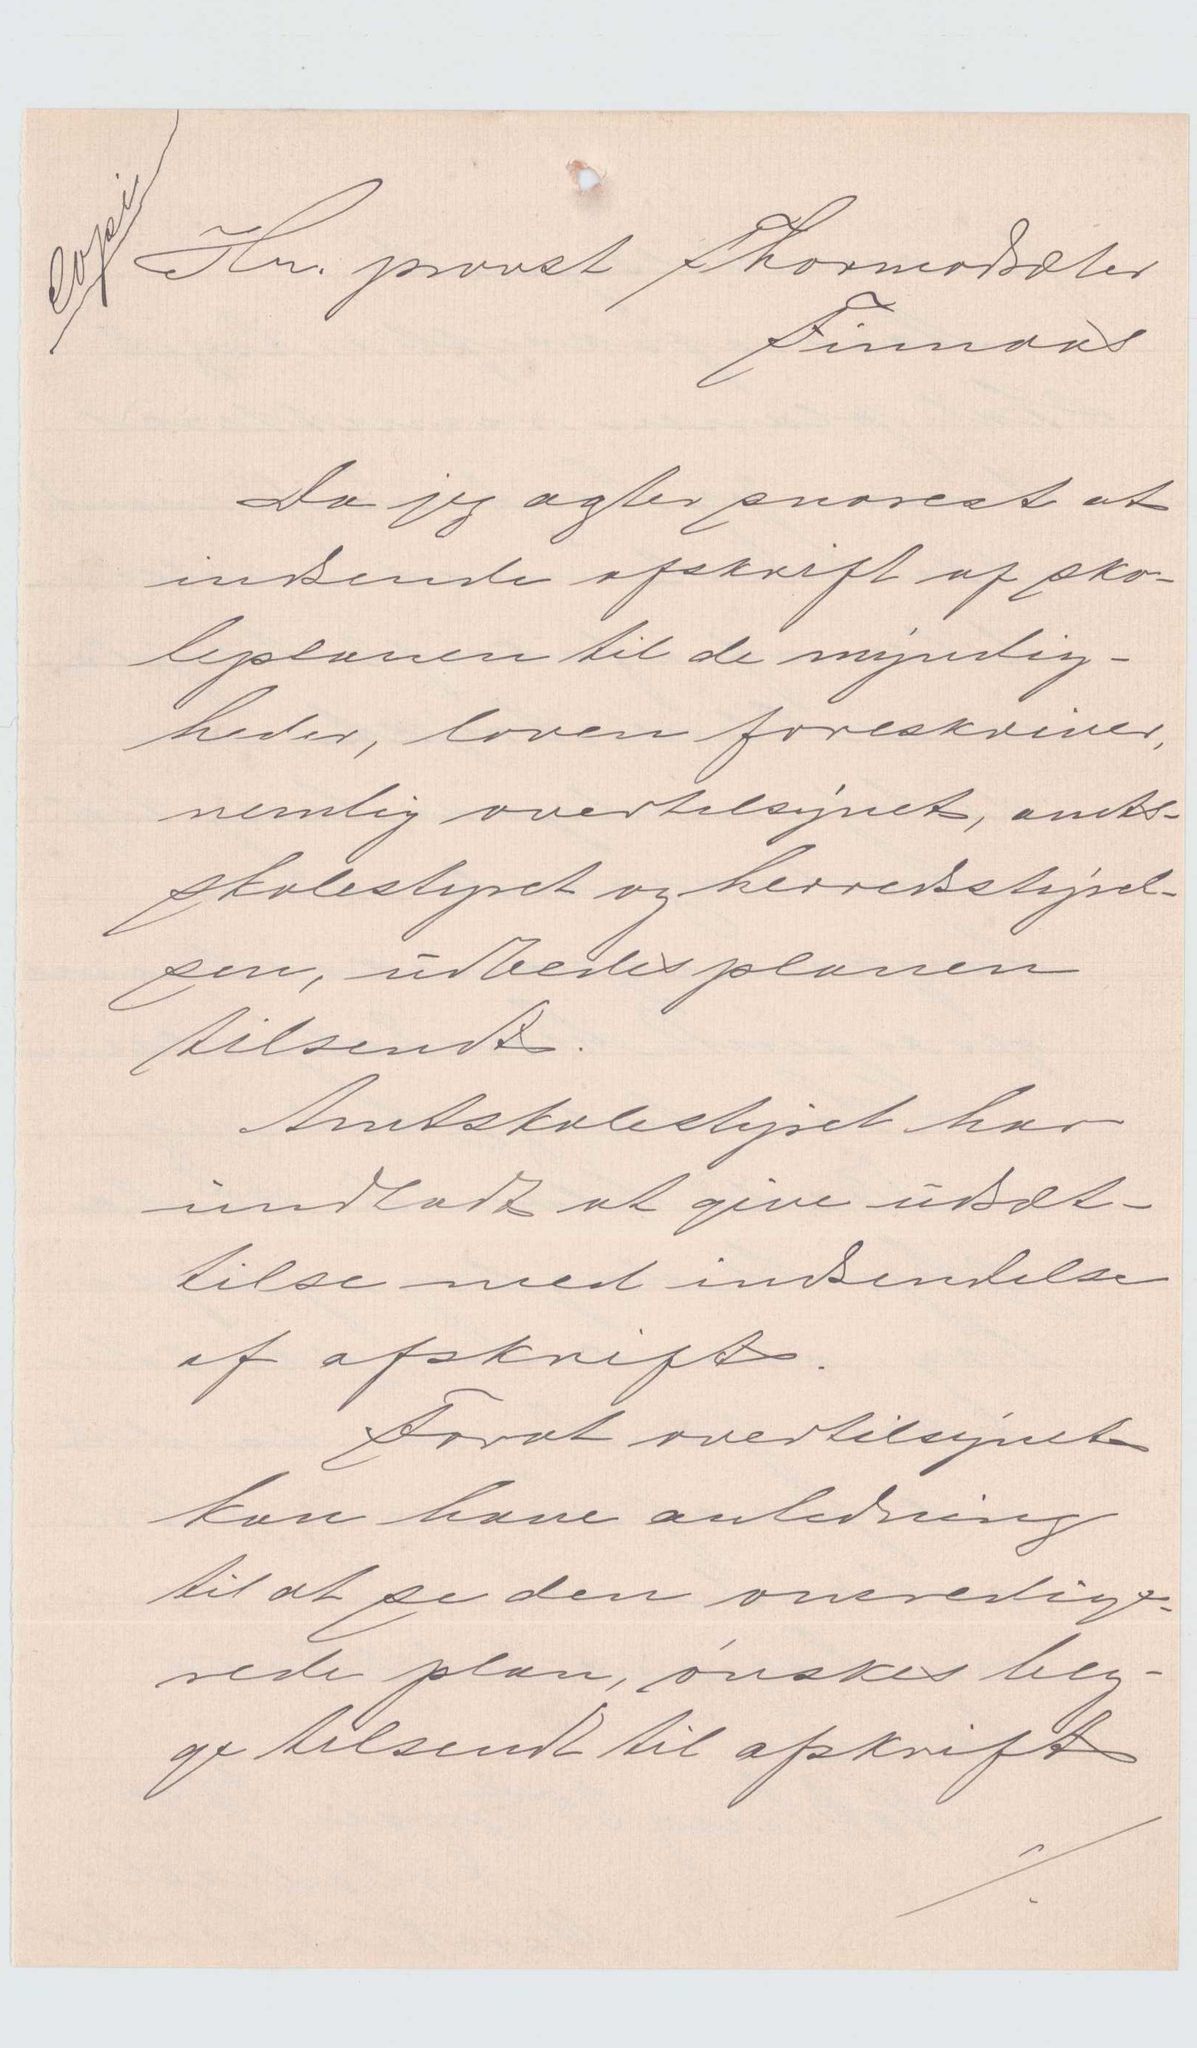 Copi
Hr. provst Thormodsæter
Finnaas
Da jeg agter snarest at
indsende afskrift af sko-
leplanen til de myndig-
heder, loven foreskriver,
nemlig overtilsynet, amts-
skolestyret og herredsstyrel-
sen, udbedes planen
tilsendt.
Amtskolestyret har
undladt at give udsæt-
telse med indsendelse
af afskrift.
Forat overtilsynet
kan have anledning
til at se den omredige-
rede plan, ønskes beg-
ge tilsendt til afskrift
./.